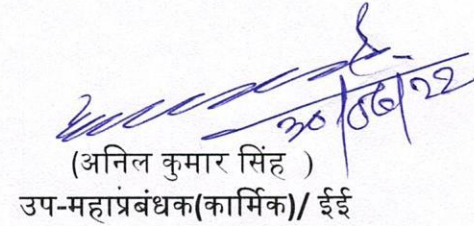 30/06/22
(अनिल कुमार सिंह )
उप-महाप्रंबंधक(कार्मिक)/ ईई